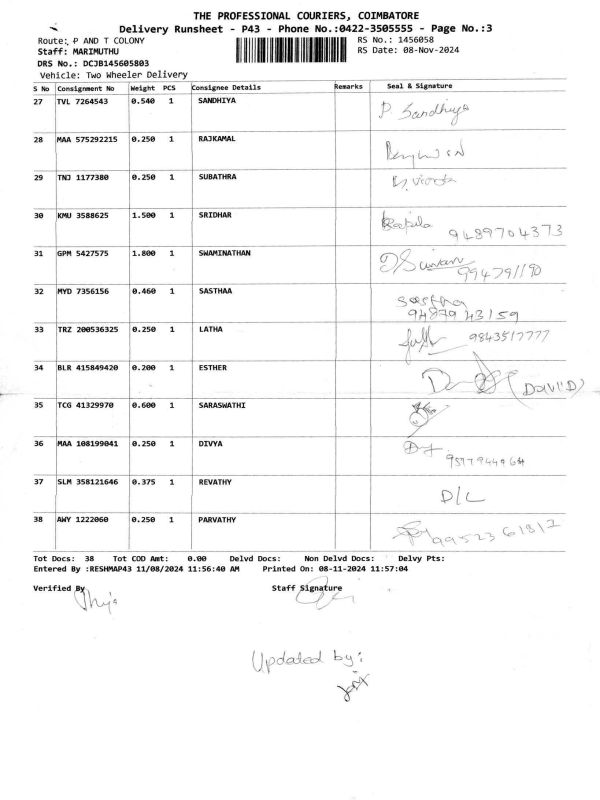 THE PROFESSIONAL COURIERS, COIMBATORE
Delivery Runsheet - P43 - Phone No.:0422-3505555 - Page No.:3
Route: P AND T COLONY RS No.: 1456058
Staff: MARIMUTHU RS Date: 08-Nov-2024
DRS No.: DCJB145605803
Vehicle: Two Wheeler Delivery
S No Consignment No Weight PCS Consignee Details Remarks Seal & Signature
27 TVL 7264543 0.540 1 SANDHIYA P. Sandhiya
28 MAA 575292215 0.250 1 RAJKAMAL
29 TNJ 1177380 0.250 1 SUBATHRA
30 KMU 3588625 1.500 1 SRIDHAR 9489704373
31 GPM 5427575 1.800 1 SWAMINATHAN
32 MYD 7356156 0.460 1 SASTHAA Sastha
9487943159
33 TRZ 200536325 0.250 1 LATHA 9843517777
34 BLR 415849420 0.200 1 ESTHER (David)
35 TCG 41329970 0.600 1 SARASWATHI
36 MAA 108199041 0.250 1 DIVYA
37 SLM 358121646 0.375 1 REVATHY D/L
38 AWY 1222060 0.250 1 PARVATHY
Tot Docs: 38 Tot COD Amt: 0.00 Delvd Docs: Non Delvd Docs: Delvy Pts:
Entered By :RESHMAP43 11/08/2024 11:56:40 AM Printed On: 08-11-2024 11:57:04
Verified By Staff Signature
Updated by: